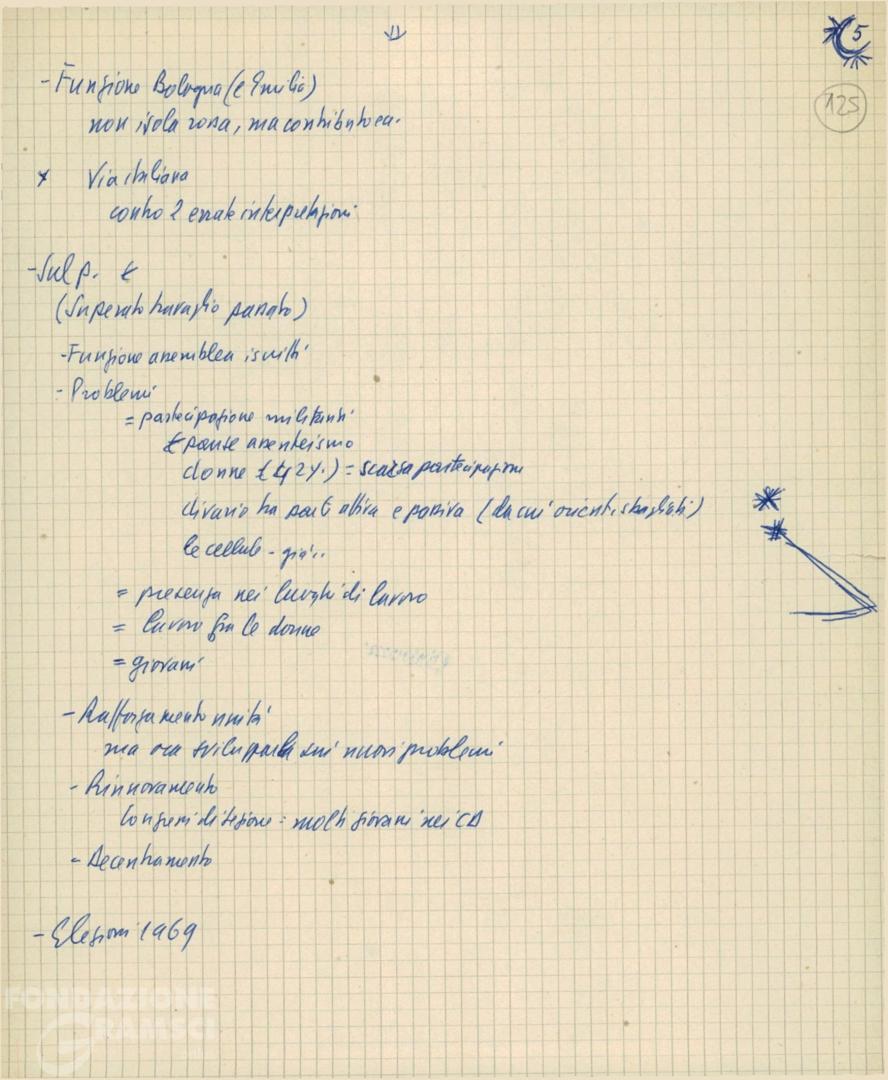 5
125
- Funzione Bologna (e Emilia)
non isola rossa, ma contributo ecc.
Via italiana
contro 2 errate interpretazioni
- Sul p.
(Superato travaglio passato)
- Funzione assemblea iscritti
- Problemi
= partecipazione militanti
assenteismo
donne (42%) = scarsa partecipazione
divario tra parte attiva e passiva (da cui orient. sbagliati)
le cellule - già..
= presenza nei luoghi di lavoro
= lavoro fra le donne
= giovani
- Rafforzamento unità
ma ora svilupparla sui nuovi problemi
- Rinnovamento
Congressi di sezione = molti giovani nei CD
- Decentramento
- Elezioni 1969
FONDAZIONE
GRAMSCI